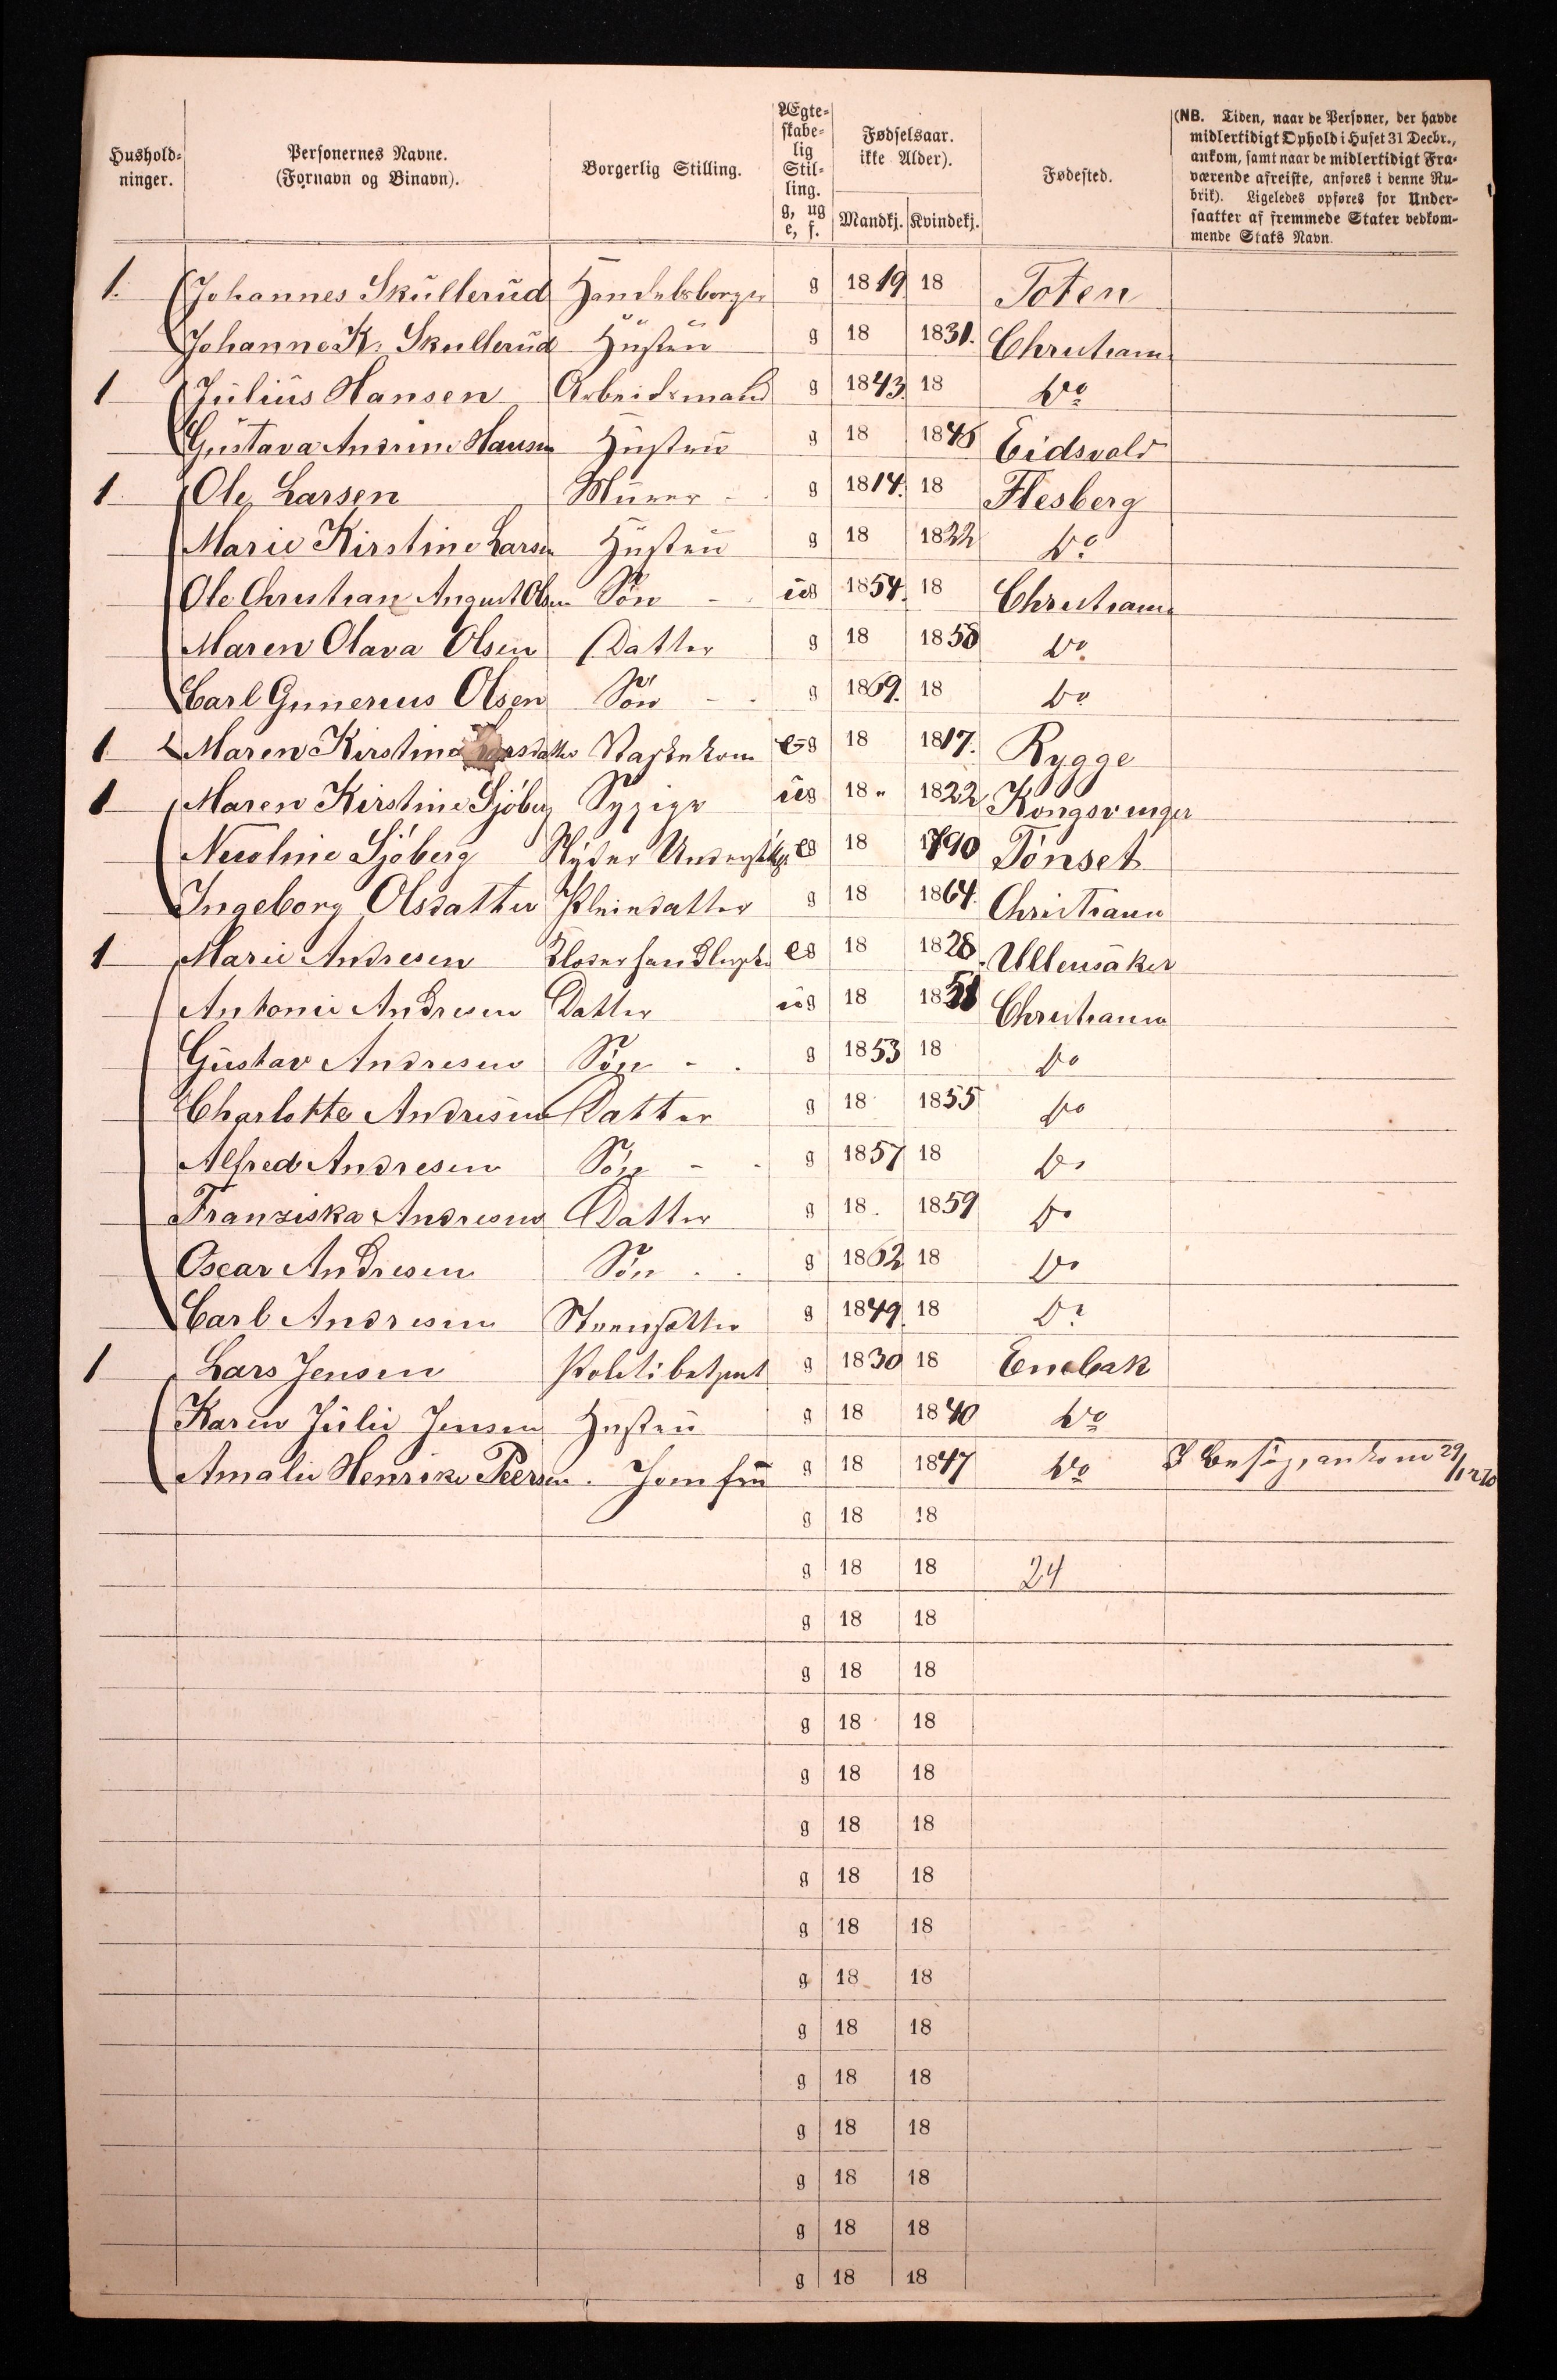 Hushold-
ninger.
Personernes Navne.
(Fornavn og Binavn).
Borgerlig Stilling.
Ægte-
skabe-
lig
Stil-
ling.
g, ug
e, f.
Fødselsaar.
ikke Alder).
Mandkj. Kvindekj.
Fødested.
(NB. Tiden, naar de Personer, der havde
midlertidigt Ophold i Huset 31 Decbr.,
ankom, samt naar de midlertidigt Fra-
værende afreiste, anføres i denne Ru-
brik). Ligeledes opføres for Under-
saatter af fremmede Stater vedkom-
mende Stats Navn.
1. Johannes Skullerud Handelsborger g 1819 18 Toten
Johanne K. Skullerud Hustru g 18 1831. Christiania
1 Julius Hansen Arbeidsmand g 1843 18 Do
Gustava Andrine Hansen Hustru g 18 1845 Eidsvold
1 Ole Larsen Murer g 1814. 18 Flesberg
Marie Kirstine Larsen Hustru g 18 1822 Do
Ole Christian August Olsen Søn ug 1854. 18 Christiania
Maren Olava Olsen Datter g 18 1858 Do
Carl Gunerius Olsen Søn g 1869. 18 Do
1 Maren Kirstine Vaskekone g 18 1817. Rygge
1 Maren Kirstine Sjöberg Sypige ug 18 " 1822 Kongsvinger
Nicoline Sjöberg Nyder Understøttelse e 18 1790 Tönset
Ingeborg Olsdatter Pleiedatter g 18 1864. Christiania
1 Marie Andresen e 18 1828. Ullensaker
Antonie Andresen Datter ug 18 1851 Christiania
Gustav Andresen Søn g 1853 18 Do
Charlotte Andresen Datter g 18 1855 Do
Alfred Andresen Søn g 1857 18 Do
Franziska Andresen Datter g 18. 1859 Do
Oscar Andresen Søn g 1862 18 Do
Carl Andresen g 1849. 18 Do
1 Lars Jensen Politibetjent g 1830 18 Enebak
Karen Julie Jensen Hustru g 18 1840 Do
Amalie Henrike Peersen. Jomfru g 18 1847 Do I Besøg, ankom 29/12 70
g 18 18
g 18 18 24
g 18 18
g 18 18
g 18 18
g 18 18
g 18 18
g 18 18
g 18 18
g 18 18
g 18 18
g 18 18
g 18 18
g 18 18
g 18 18
g 18 18